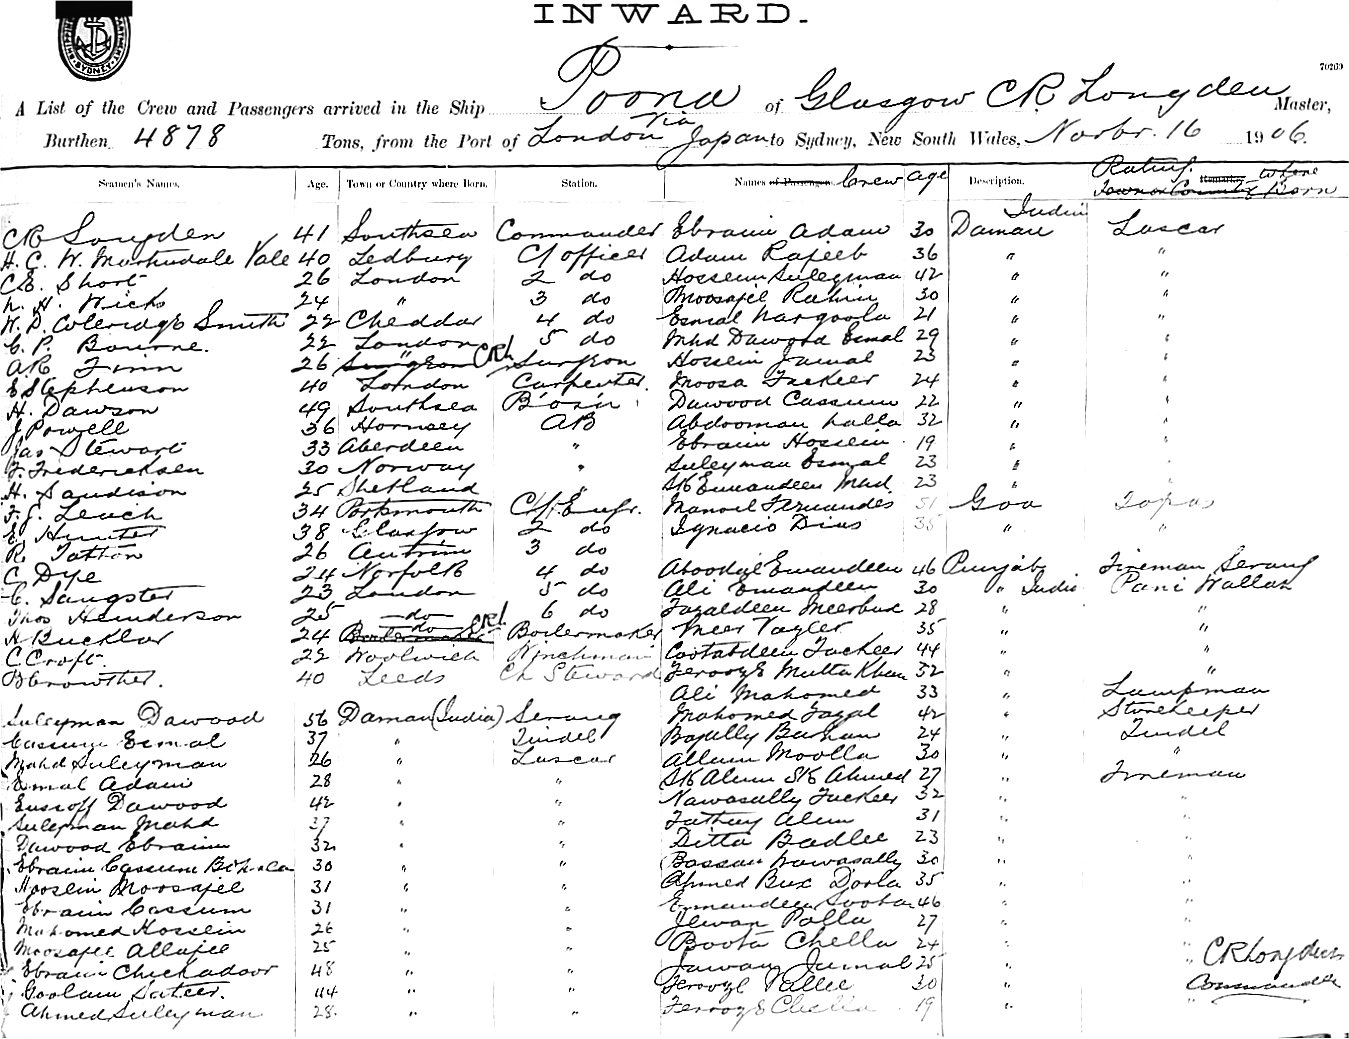 INWARD.
SYDNEY
70269
A List of the Crew and Passengers arrived in the Ship Poona of Glasgow CR Longden Master,
Burthen 4878 Tons, from the Port of London Via Japan to Sydney, New South Wales, Novbr. 16 1906.
Seamen's Names. Age. Town or Country where Born. Station. Names of Passengers Crew Age Description. Rating. Remarks where
Town or Country Born
CR Longden 41 Southsea Commander Ebraim Adam 30 Daman India Lascar
H. C. W. Martindale Vale 40 Ledbury C/ officer Adam Rajeeb 36 " "
C.E. Short 26 London 2 do Hossein Suleyman 42 " "
H. Wicks 24 " 3 do Moosajee Rahim 30 " "
W. D. Coleridge Smith 22 Cheddar 4 do Esmal Nargoola 21 " "
C. P. Bourne. 22 London 5 do Mhd Dawood Esmal 29 " "
AR Finn 26 Surgeon " CRL Surgeon Hossein Jamal 23 " "
E Stephenson 40 London Carpenter. Moosa Fackeer 24 " "
H. Dawson 49 Southsea Bosn Dawood Cassum 22 " "
J Powell 36 Hornsey AB Abdooman Lalla 32 " "
Jas Stewart 33 Aberdeen " Ebraim Hossein 19 " "
F. Fredericksen 30 Norway " Suleyman Esmal 23 " "
H. Sandison 25 Shetland " SK Emandeen Mad. 23 " "
F. J. Leach 34 Portsmouth C/f. Engr. Manoel Fernandes 51 Goa Topas
E Hunter 38 Glasgow 2 do Ignacio Dias 35 " "
R. Tatton 26 Antrim 3 do
C. Dye 24 Norfolk 4 do Aboodyl Emandeen 46 Punjab Fireman Serang
C. Sangster 23 London 5 do Ali Emandeen 30 " India Pani Wallah
Thos Henderson 25 do 6 do Fazaldeen Meerbux 28 " "
A Buckler 24 Boilermaker do CRL Boilermaker Meer Vazler 35 " "
C Croft. 22 Woolwich Winchman Cootabdeen Fackeer 44 " "
B Crowther. 40 Leeds Ch Steward Ferooze Mutta Khan 32 " "
Ali Mahomed 33 " Lampman
Suleyman Dawood 56 Daman (India) Serang Mahomed Fazal 42 " Storekeeper
Cassum Esmal 37 " Tindel Bagally Bahan 24 " Tindel
Mahd Suleyman 26 " Lascar Allum Moolla 30 " "
Esmal Adam 28 " " SK Alum SK Ahmed 27 " Fireman
Eussoff Dawood 42 " " Nawasally Fackeer 32 " "
Suleyman Mahd 37 " " Fathey Alum 31 " "
Dawood Ebraim 32 " " Ditta Badlee 23 " "
Ebraim Cassum 30 " " Bassau Nawasally 30 " "
Hoosein Moosajee 31 " " Ahmed Bux Doola 35 " "
Ebraim Cassum 31 " " Emandeen Soota 46 " "
Mahomed Hossein 26 " " Jewan Palla 27 " "
Moosajee Allajee 25 " " Boota Chella 24 " "
Ebraim Chickadoor 48 " " Jawan Jumal 25 " " CR Longden
Goolam Sateer. 44 " " Ferooze Pallee 30 " " Commander
Ahmed Suleyman 28 " " Ferooze Chella 19 " "